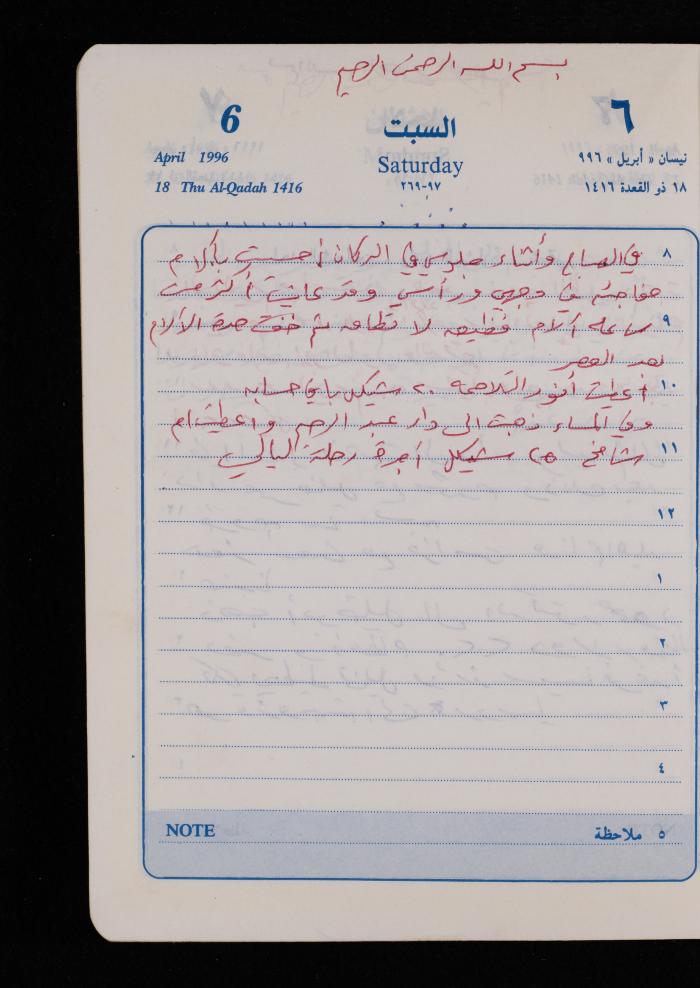 بسم الله الرحمن الرحيم
6 السبت ٦
April 1996 Saturday نيسان « أبريل » ٩٩٦
18 Thu Al-Qadah 1416 ٩٧-٢٦٩ ١٨ ذو القعدة ١٤١٦
٨ في الصباح وأثناء جلوسي في الدكان أحسست بآلام
مفاجئة في وجهي ورأسي وقد عانيت أكثر من
٩ ساعة آلام فظيعة لا تطاق ثم خفت حدة الآلام
بعد العصر
١٠ أعطيت أنور اللاحمة ٢٠ شيكل باقي حسابه
وفي المساء ذهبت الى دار عبد الرحيم واعطيت ام
١١ شامخ ٢٥ شيكل أجرة رحلة
١٢
١
٢
٣
٤
NOTE ٥ ملاحظة